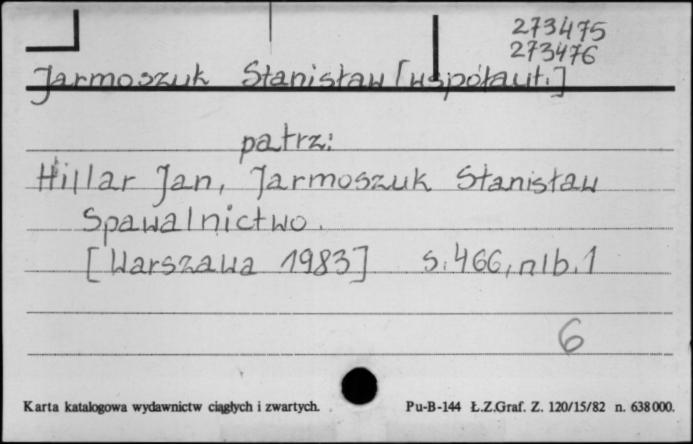 273475
273476
Jarmoszuk Stanisław [współaut.]
patrz:
Hillar Jan, Jarmoszuk Stanisław
Spawalnictwo.
[Warszawa 1983] s. 466, nlb. 1
6
Karta katalogowa wydawnictw ciągłych i zwartych. Pu-B-144 Ł.Z.Graf. Z. 120/15/82 n. 638000.